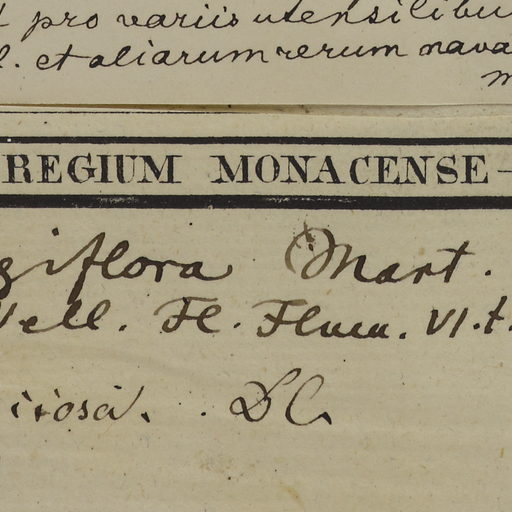 pro variis utensilibu
l. et aliarum rerum nava
m
REGIUM MONACENSE –
giflora Mart.
Vell. Fl. Flum. VI. t.
iiosa. DC